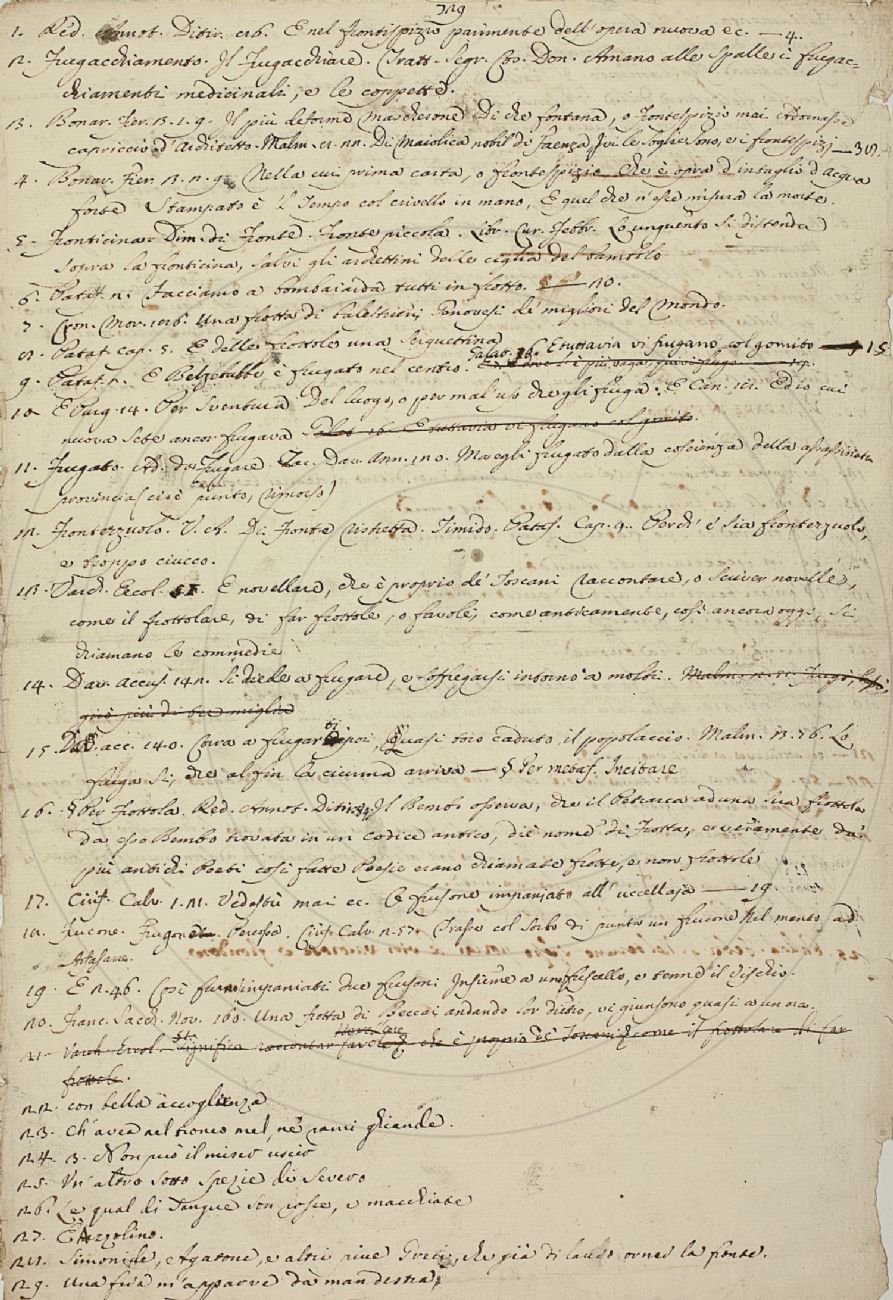 319
1. Red. Annot. Ditir. 26. E nel frontispizio parimente dell'opera nuova ec. — 4.
2. Frugacchiamento. Il frugacchiare. (Tratt. Segr. Cos. Don. Amano alle spalle i frugac=
chiamenti medicinali, e le coppette.
3. Bonar. Fier. 3. 1. 9. Il più deforme mascherone Di che fontana, o frontespizio mai Adornasse
capriccio d'Architetto. Malm. Di Maiolica nobil di Faenza Ivi le soglie sono, e i frontespizj — 30.
4. Bonar. Fier. 3. 2. 9. Nella cui prima carta, o frontespizio Che è opra d'intaglio d'acqua
forte Stampato è 'l Tempo col crivello in mano, E quel che n'esce misura la morte.
5. Fronticina. Dim. di Fronte. Fronte piccola. Libr. Cur. Febbr. Lo unguento si distenda
sopra la fronticina, salvi gli archettini delle ciglia del bambolo
6. Pataff. 2. Facciamo a bombababà tutti in frotto. — 20.
7. Cron. Mor. 326. Una frotta di balestrieri Genovesi de' migliori del Mondo.
8. Pataf. cap. 5. E delle frottole una serquettina E tuttavia vi frugano col gomito — 15
9. Pataf. 5. E Belzebubbe è frugato nel centro.
10 E Purg. 14. Per sventura Del luogo, o per mal'uso che gli fruga. E Can. 18. Ed io cui
nuova sete ancor frugava Galat. 16. E tuttavia vi frugano col gomito.
11. Frugato. Ad. da Frugare. Tac. Dav. Ann. 1. 20. Ma egli frugato dalla coscienza della assassinata
provincia (cioè punto, rimorso)
12. Fronterzuolo. V. A. Di Fronte ristretta. Timido. Pataf. Cap. 9. Perch' e' sia fronterzuolo,
e troppo ciucco.
13. Varch. Ercol. E novellare, che è proprio de' Toscani raccontare, o scriver novelle,
come il frottolare, di far frottole, o favole, come anticamente, così ancora oggi, si
chiamano le commedie
14. Dav. Accus. 142. Si diede a frugare, e soffregarsi intorno a molti. Malm. Frugò,
più di tre miglia
15 Dav. acc. 140. Cova a frugar dipoi, Quasi orso caduto, il popolaccio. Malm. 3. 76. Lo
fruga sì, che al fin la ciurma arriva — § Per metaf. Incitare
16. § Per Frottola. Red. Annot. Ditir. Il Bembo osserva, che il Petrarca ad una sua frottola
da esso Bembo trovata in un codice antico, diè nome di Frotta, e veramente da'
più antichi Poeti così fatte Poesie erano chiamate frotte, e non frottole
17. Ciriff. Calv. 1. 21. Vedestù mai ec. Lo frusone impaniato all'uccellaja — 19.
18. Frucone. Frugone. Percossa. Ciriff. Calv. 2. 57. Trasse col Sorbo di punta un frucone Nel mento ad
Atasare.
19 E 2. 46. Così furo impaniati due frusoni Insieme a un fuscello, e tenne il vischio.
20. Franc. Sacch. Nov. 160. Una frotta di Beccai andando lor dietro, vi giunsono quasi a un ora.
21. Varch. Ercol. Significa raccontar favole, che è proprio de' Toscani come il frottolare di far
frottole.
22. con bella accoglienza
23. Ch'avea nel tronco mel, ne' rami ghiande.
24. 3. Non può il misero uscir
25. Un'altro sotto spezie di severo
26. Le qual di sangue son rosse, e macchiate
27. E Azzolino.
28. Simonide, Agatone, e altri piue Greci, che già di lauro ornar la fronte.
29. Una fera m'apparve da man destra,